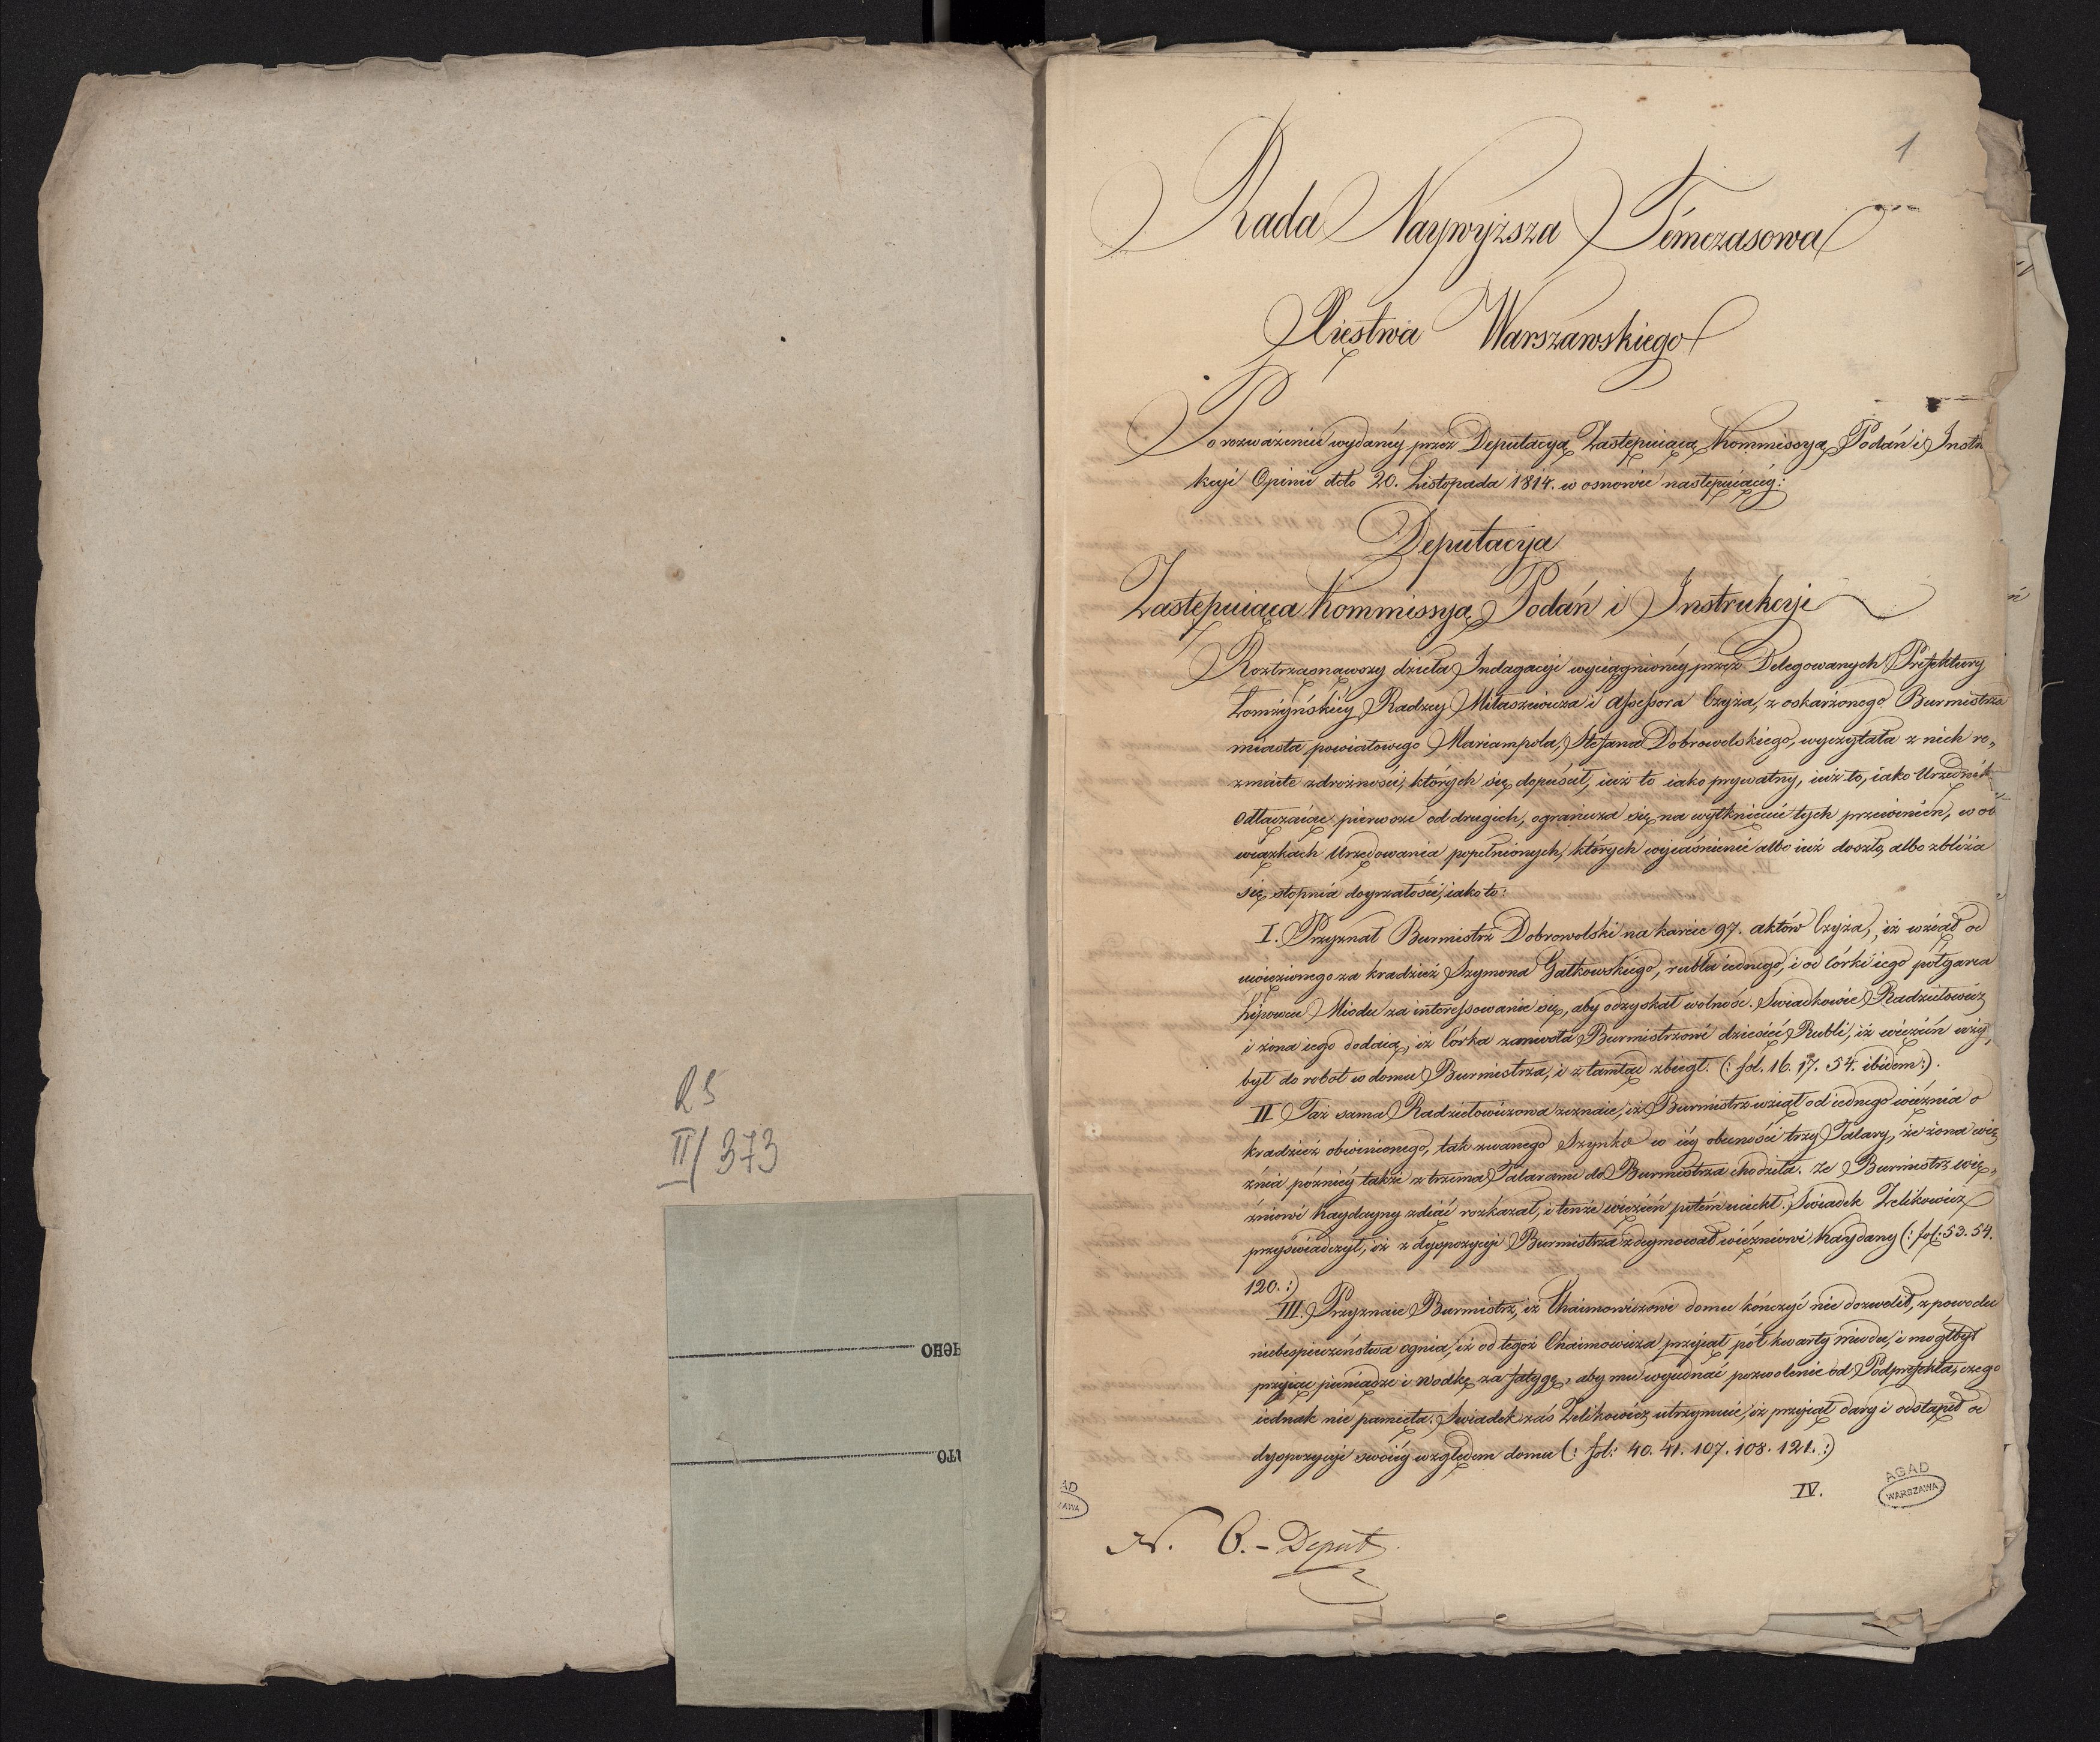 RS
II/373
НЕНО
ИТО
1
Rada Naywyższa Témczasowa
Xięstwa Warszawskiego
Po rozważeniu wydanéy przez Deputacyą Zastępuiącą Kommissyą Podań i Instru
kcyi Opinii ddo 20. Listopada 1814. w osnowie następuiącéy:
Deputacyja
Zastępuiąca Kommissyą Podań i Instrukcyi
Roztrząsnąwszy dzieła Indagacyi wyciągnionéy przez Delegowanych Prefektury
Łomżyńskiéy Radzcy Miłaszewicza i Assessora Czyża, z oskarżonego Burmistrza
miasta powiatowego Mariampola, Stefana Dobrowolskiego, wyczytała z nich ro„
zmaite zdrożności, których się dopuścił, iuż to iako prywatny, iuż to, iako Urzędnik
odłączaiąc pierwsze od drugich, ogranicza się na wytknieciu tych przewinień, w ob
wiązkach Urzędowania popełnionych, których wyiaśnienie albo iuż doszło, albo zbliża
się stopnia doyrzałości, iako to:
I. Przyznał Burmistrz Dobrowolski na karcie 97. aktów Czyża, iż wziął od
uwięzionego za kradzież Szymona Gatkowskiego, rubla iednego, i od Córki iego półgarca
Lipowcu Miodu za interessowanie się, aby odzyskał wolność. Swiadkowie Radziełowicz
i żona iego dodaią, iż Córka zaniosła Burmistrzowi dziesięć Rubli, iż więzień uży„
był do robot w domu Burmistrza, i z tamtąd zbiegł. (: fol. 16. 17. 54. ibidem :).
II Taż sama Radziełowiczowa zeznaie, iż Burmistrz wziął od iednego więźnia o
kradzież obwinionego, tak zwanego Szynko w iéy obecności trzy Talary, że żona wię
źnia późniéy także z trzema Talarami do Burmistrza chodziła. że Burmistrz wię„
źniowi Kaydany zdiąć rozkazał, i tenże więzień potém uciekł. Swiadek Zelikowicz
przyświadczył, iż z dyspozycyi Burmistrza zdeymował więźniowi Kaydany (: fol: 53. 54.
120. :)
III. Przyznaie Burmistrz, iż Chaimowiczowi domu kończyć nie dozwolił, z powodu
niebespieczeństwa ognia, iż od tegoż Chaimowicza przyiął pół kwarty miodu, i mógłbył
przyiąć pieniądze i wodkę za fatygę, aby mu wyiednać pozwolenie od Podprefekta, czego
iednak nie pamięta. Swiadek zaś Zelikowicz utrzymuie, iż przyiął dary i odstąpił od
dyspozycyi swoiéy względem domu (: fol: 40. 41. 107. 108. 121. :)
IV.
AGAD
WARSZAWA
N. 6. - Deput